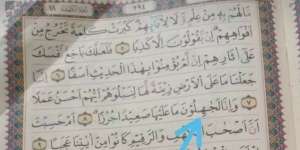 ٢٩٤
مَّا لَهُم بِهِۦ مِنْ عِلْمٍ وَلَا لِءَابَآئِهِمْ كَبُرَتْ كَلِمَةً تَخْرُجُ مِنْ
أَفْوَٰهِهِمْ إِن يَقُولُونَ إِلَّا كَذِبًا ٥ فَلَعَلَّكَ بَٰخِعٌ نَّفْسَكَ
عَلَىٰٓ ءَاثَٰرِهِمْ إِن لَّمْ يُؤْمِنُوا۟ بِهَٰذَا ٱلْحَدِيثِ أَسَفًا ٦ إِنَّا
جَعَلْنَا مَا عَلَى ٱلْأَرْضِ زِينَةً لَّهَا لِنَبْلُوَهُمْ أَيُّهُمْ أَحْسَنُ عَمَلًا
٧ وَإِنَّا مَا عَلَيْهَا صَعِيدًا جُرُزًا ٨ أَمْ حَسِبْتَ
أَنَّ أَصْحَٰبَ وَٱلرَّقِيمِ كَانُوا۟ مِنْ ءَايَٰتِنَا عَجَبًا ٩